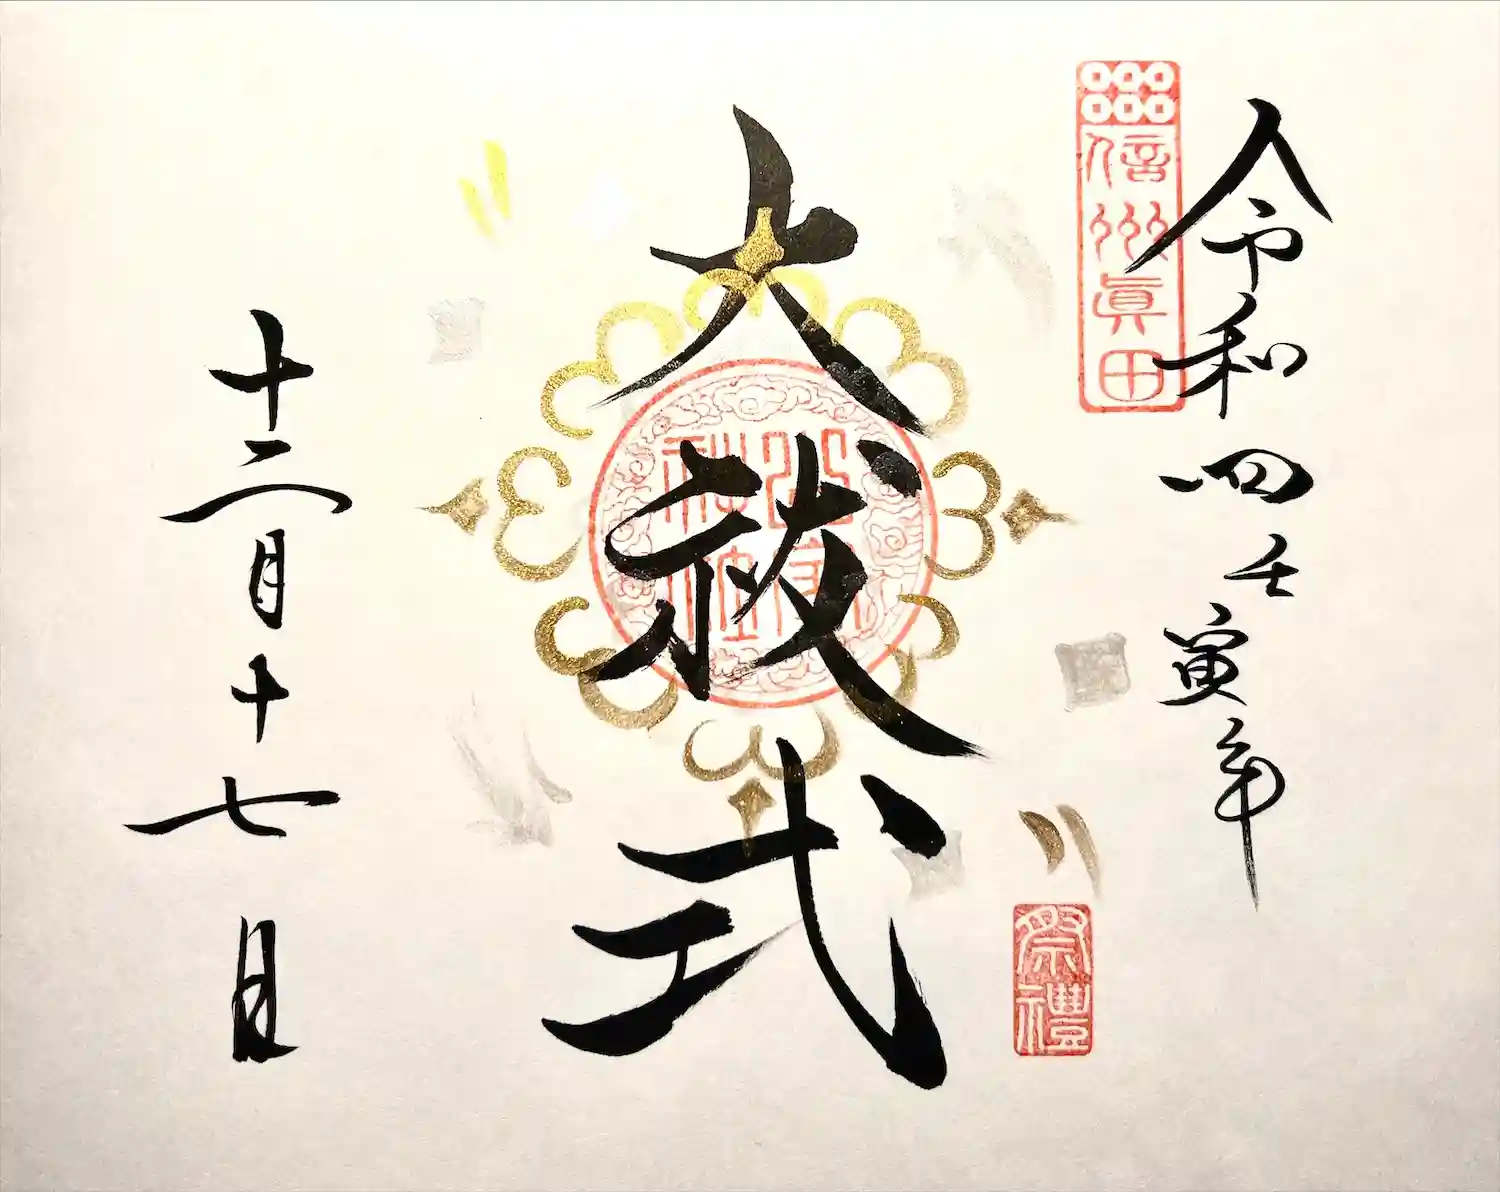 令和四壬寅年
信州眞田
大祓式
山家神社
祭禮
十二月十七日